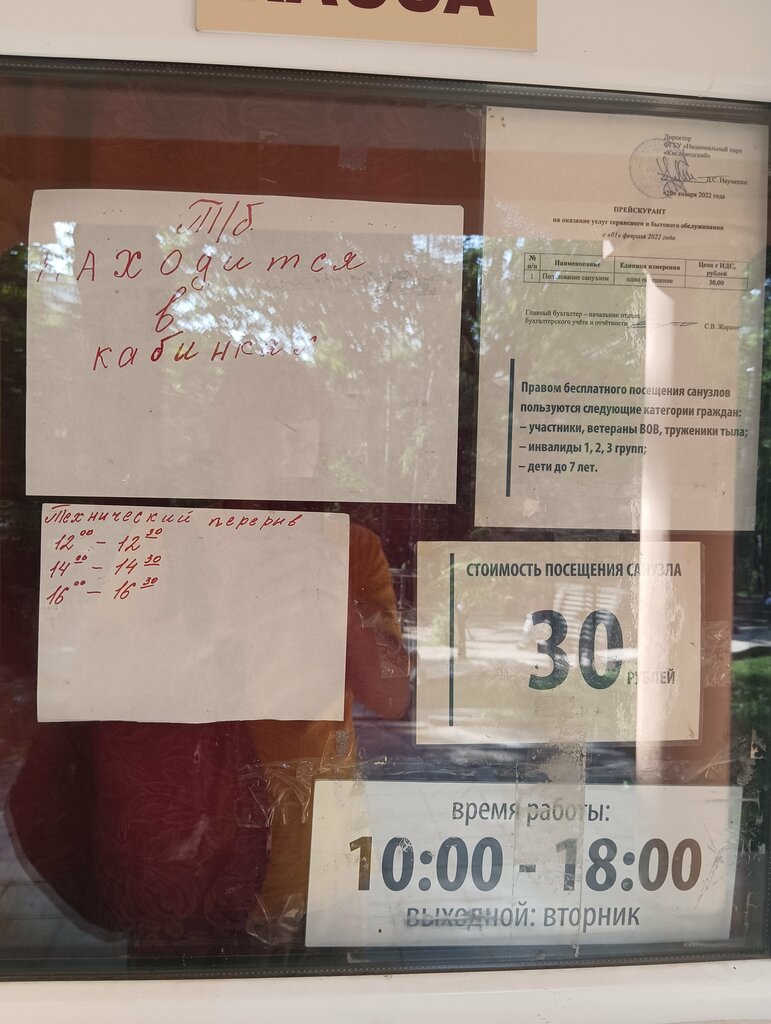 КАССА
Т/б
находится
в
кабинках
Технический перерыв
12⁰⁰ – 12³⁰
14⁰⁰ – 14³⁰
16⁰⁰ – 16³⁰
Директор
ФГБУ «Национальный парк
«Кисловодский»
Д.С. Науменко
января 2022 года
ПРЕЙСКУРАНТ
на оказание услуг сервисного и бытового обслуживания
с «01» февраля 2022 года
№ п/п Наименование Единица измерения Цена с НДС, рублей
1 Пользование санузлом одно посещение 30,00
Главный бухгалтер – начальник отдела
бухгалтерского учёта и отчётности С.В.
Правом бесплатного посещения санузлов
пользуются следующие категории граждан:
– участники, ветераны ВОВ, труженики тыла;
– инвалиды 1, 2, 3 групп;
– дети до 7 лет.
СТОИМОСТЬ ПОСЕЩЕНИЯ САНУЗЛА
30
РУБЛЕЙ
время работы:
10:00 - 18:00
выходной: вторник